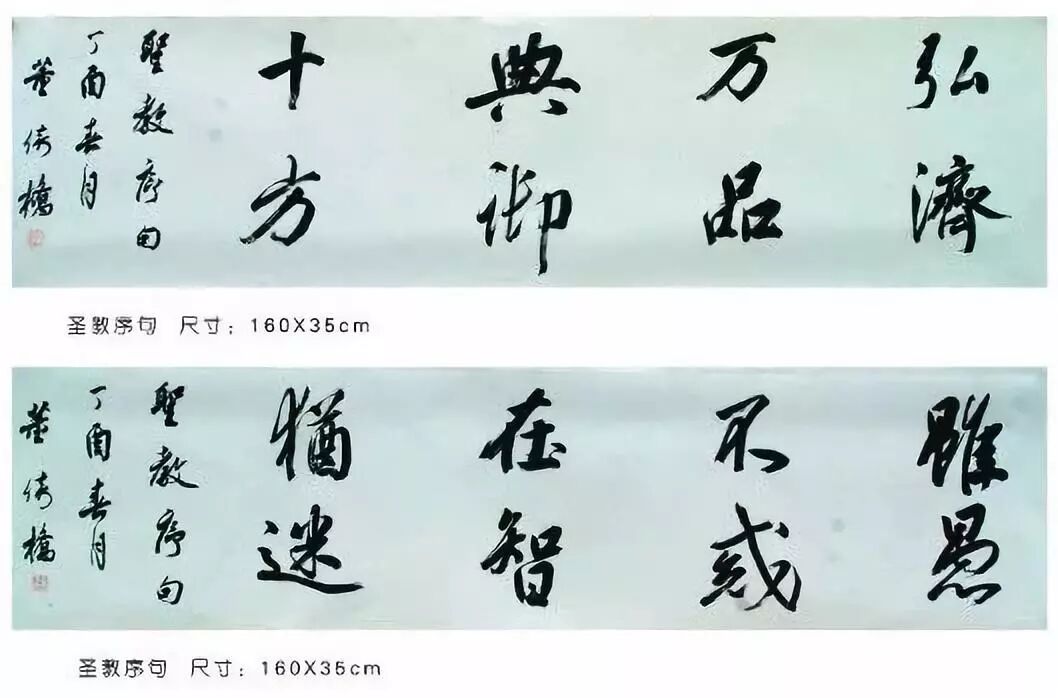 弘濟
万品
典御
十方
聖教序句
丁酉春月
董倚橋
圣教序句 尺寸：160X35cm
雖愚
不惑
在智
猶迷
聖教序句
丁酉春月
董倚橋
圣教序句 尺寸：160X35cm